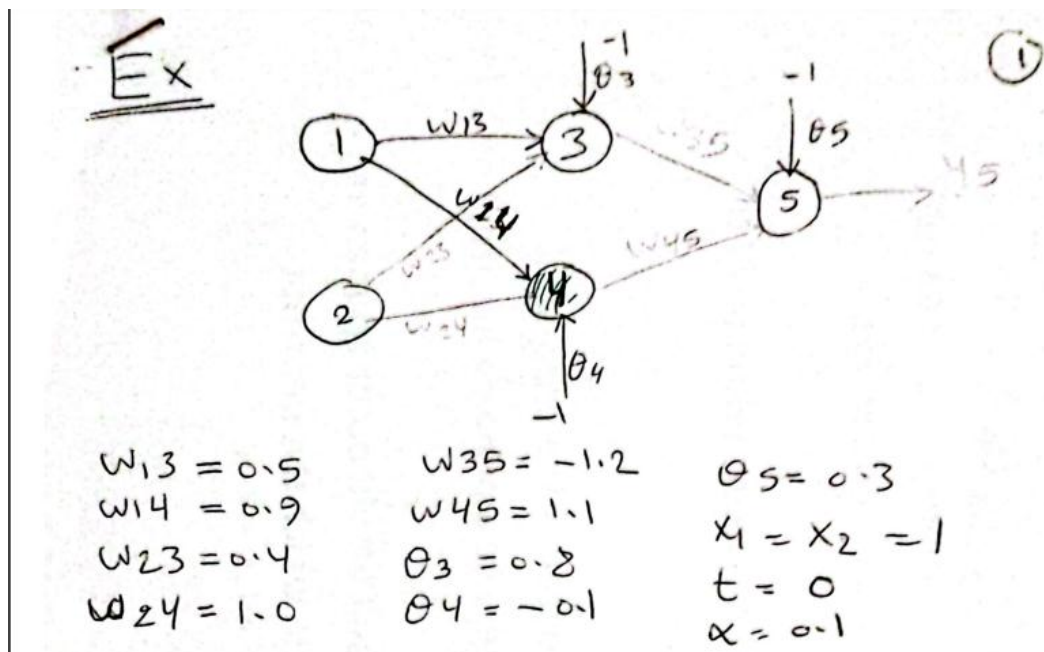 Ex
1
-1
θ3
-1
θ5
1
w13
3
w35
5
y5
w24
w23
w45
2
w24
4
θ4
-1
w13 = 0.5
w14 = 0.9
w23 = 0.4
w24 = 1.0
w35 = -1.2
w45 = 1.1
θ3 = 0.8
θ4 = -0.1
θ5 = 0.3
x1 = x2 = 1
t = 0
α = 0.1